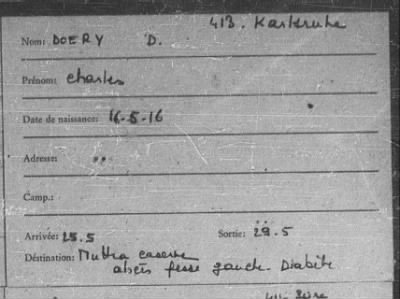 413. Karlsruhe
Nom: DOERY D.
Prénom: Charles
Date de naissance: 16-5-16
Adresse:
Camp.:
Arrivée: 25.5 Sortie: 29.5
Déstination: Muttra caserne
abcès fesse gauche. Diabète